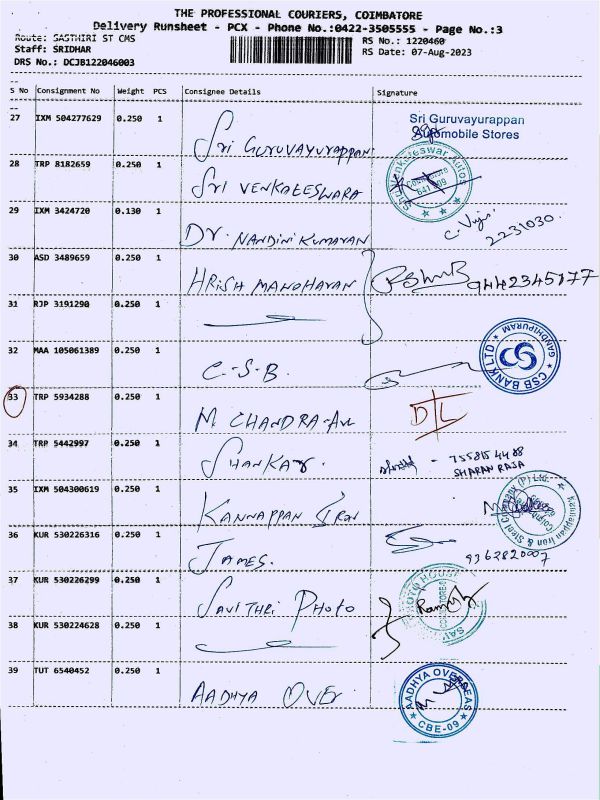 THE PROFESSIONAL COURIERS, COIMBATORE
Delivery Runsheet - PCX - Phone No.:0422-3505555 - Page No.:3
Route: SASTHIRI ST CMS
RS No.: 1220460
Staff: SRIDHAR
RS Date: 07-Aug-2023
DRS No.: DCJB122046003
S No Consignment No Weight PCS Consignee Details Signature
27 IXM 504277629 0.250 1 Sri GURUVAYURAPPAN
Sri Guruvayurappan
Automobile Stores
28 TRP 8182659 0.250 1 Sri VENKATESWARA
Shri Venkateswar Autos
COIMBATORE
641 009
29 IXM 3424720 0.130 1 Dr. NANDINI KUMARAN
2231030.
30 ASD 3489659 0.250 1 HRISH MANOHARAN
9442345177
31 RJP 3191290 0.250 1
32 MAA 105061389 0.250 1 C-S-B
CSB BANK LTD
GANDHIPURAM
33 TRP 5934288 0.250 1 M CHANDRA
D/L
34 TRP 5442997 0.250 1 SHANKAR.
SHARAN RAJA
35 IXM 504300619 0.250 1 KANNAPPAN IRON
Kannappan Iron & Steel Company (P) Ltd.
36 KUR 530226316 0.250 1 JAMES.
9362820007
37 KUR 530226299 0.250 1 SAVITHRI PHOTO
38 KUR 530224628 0.250 1
39 TUT 6540452 0.250 1 AADHYA OVER
AADHYA OVERSEAS
CBE-09